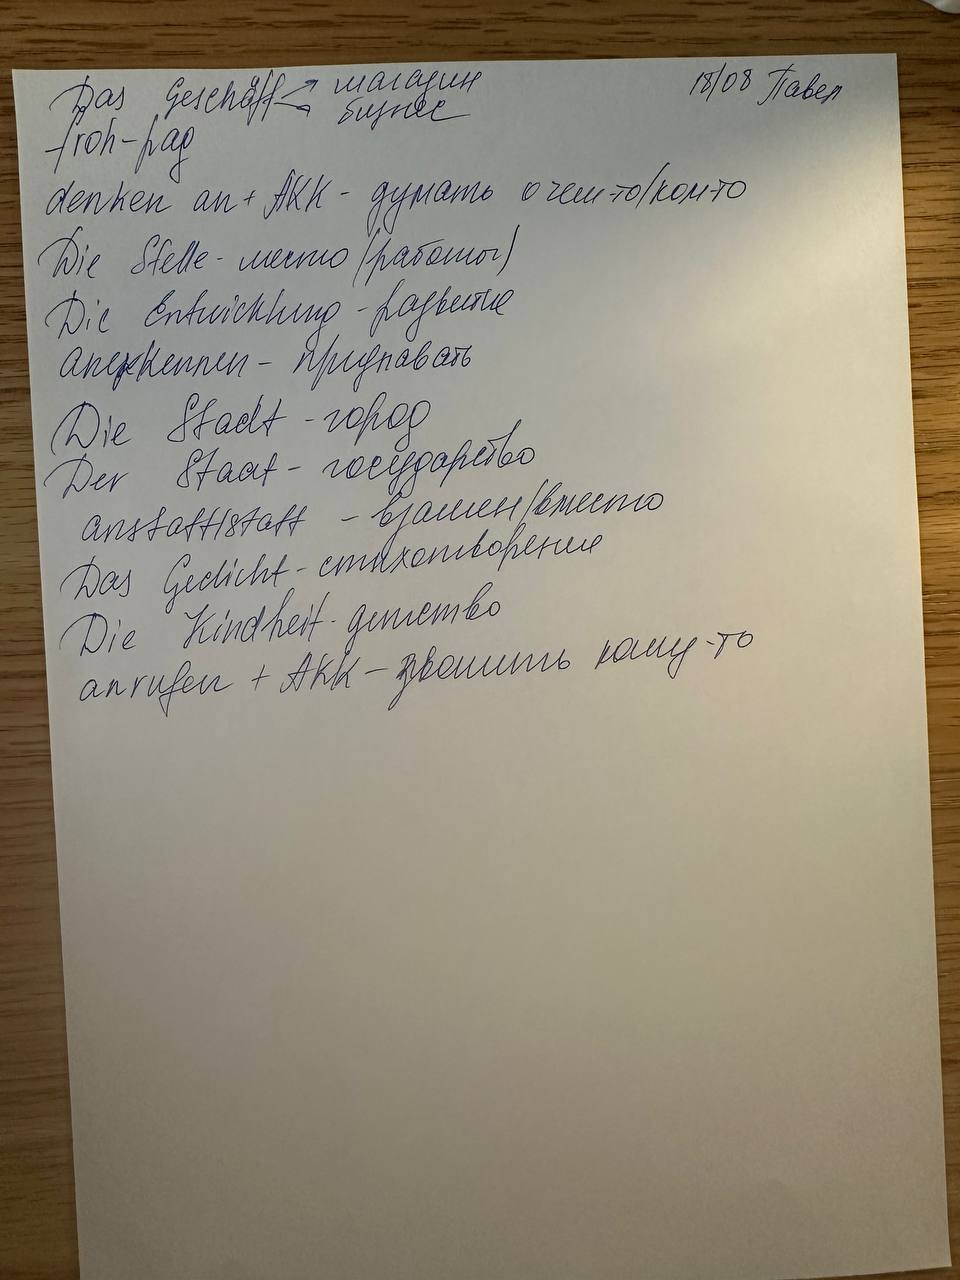 Das Geschäft → магазин 18/08 Павел
→ бизнес
froh - рад
denken an + AKK - думать о чем-то/ком-то
Die Stelle - место (работы)
Die Entwicklung - развитие
anerkennen - признавать
Die Stadt - город
Der Staat - государство
anstatt/statt - взамен/вместо
Das Gedicht - стихотворение
Die Kindheit - детство
anrufen + AKK - звонить кому-то